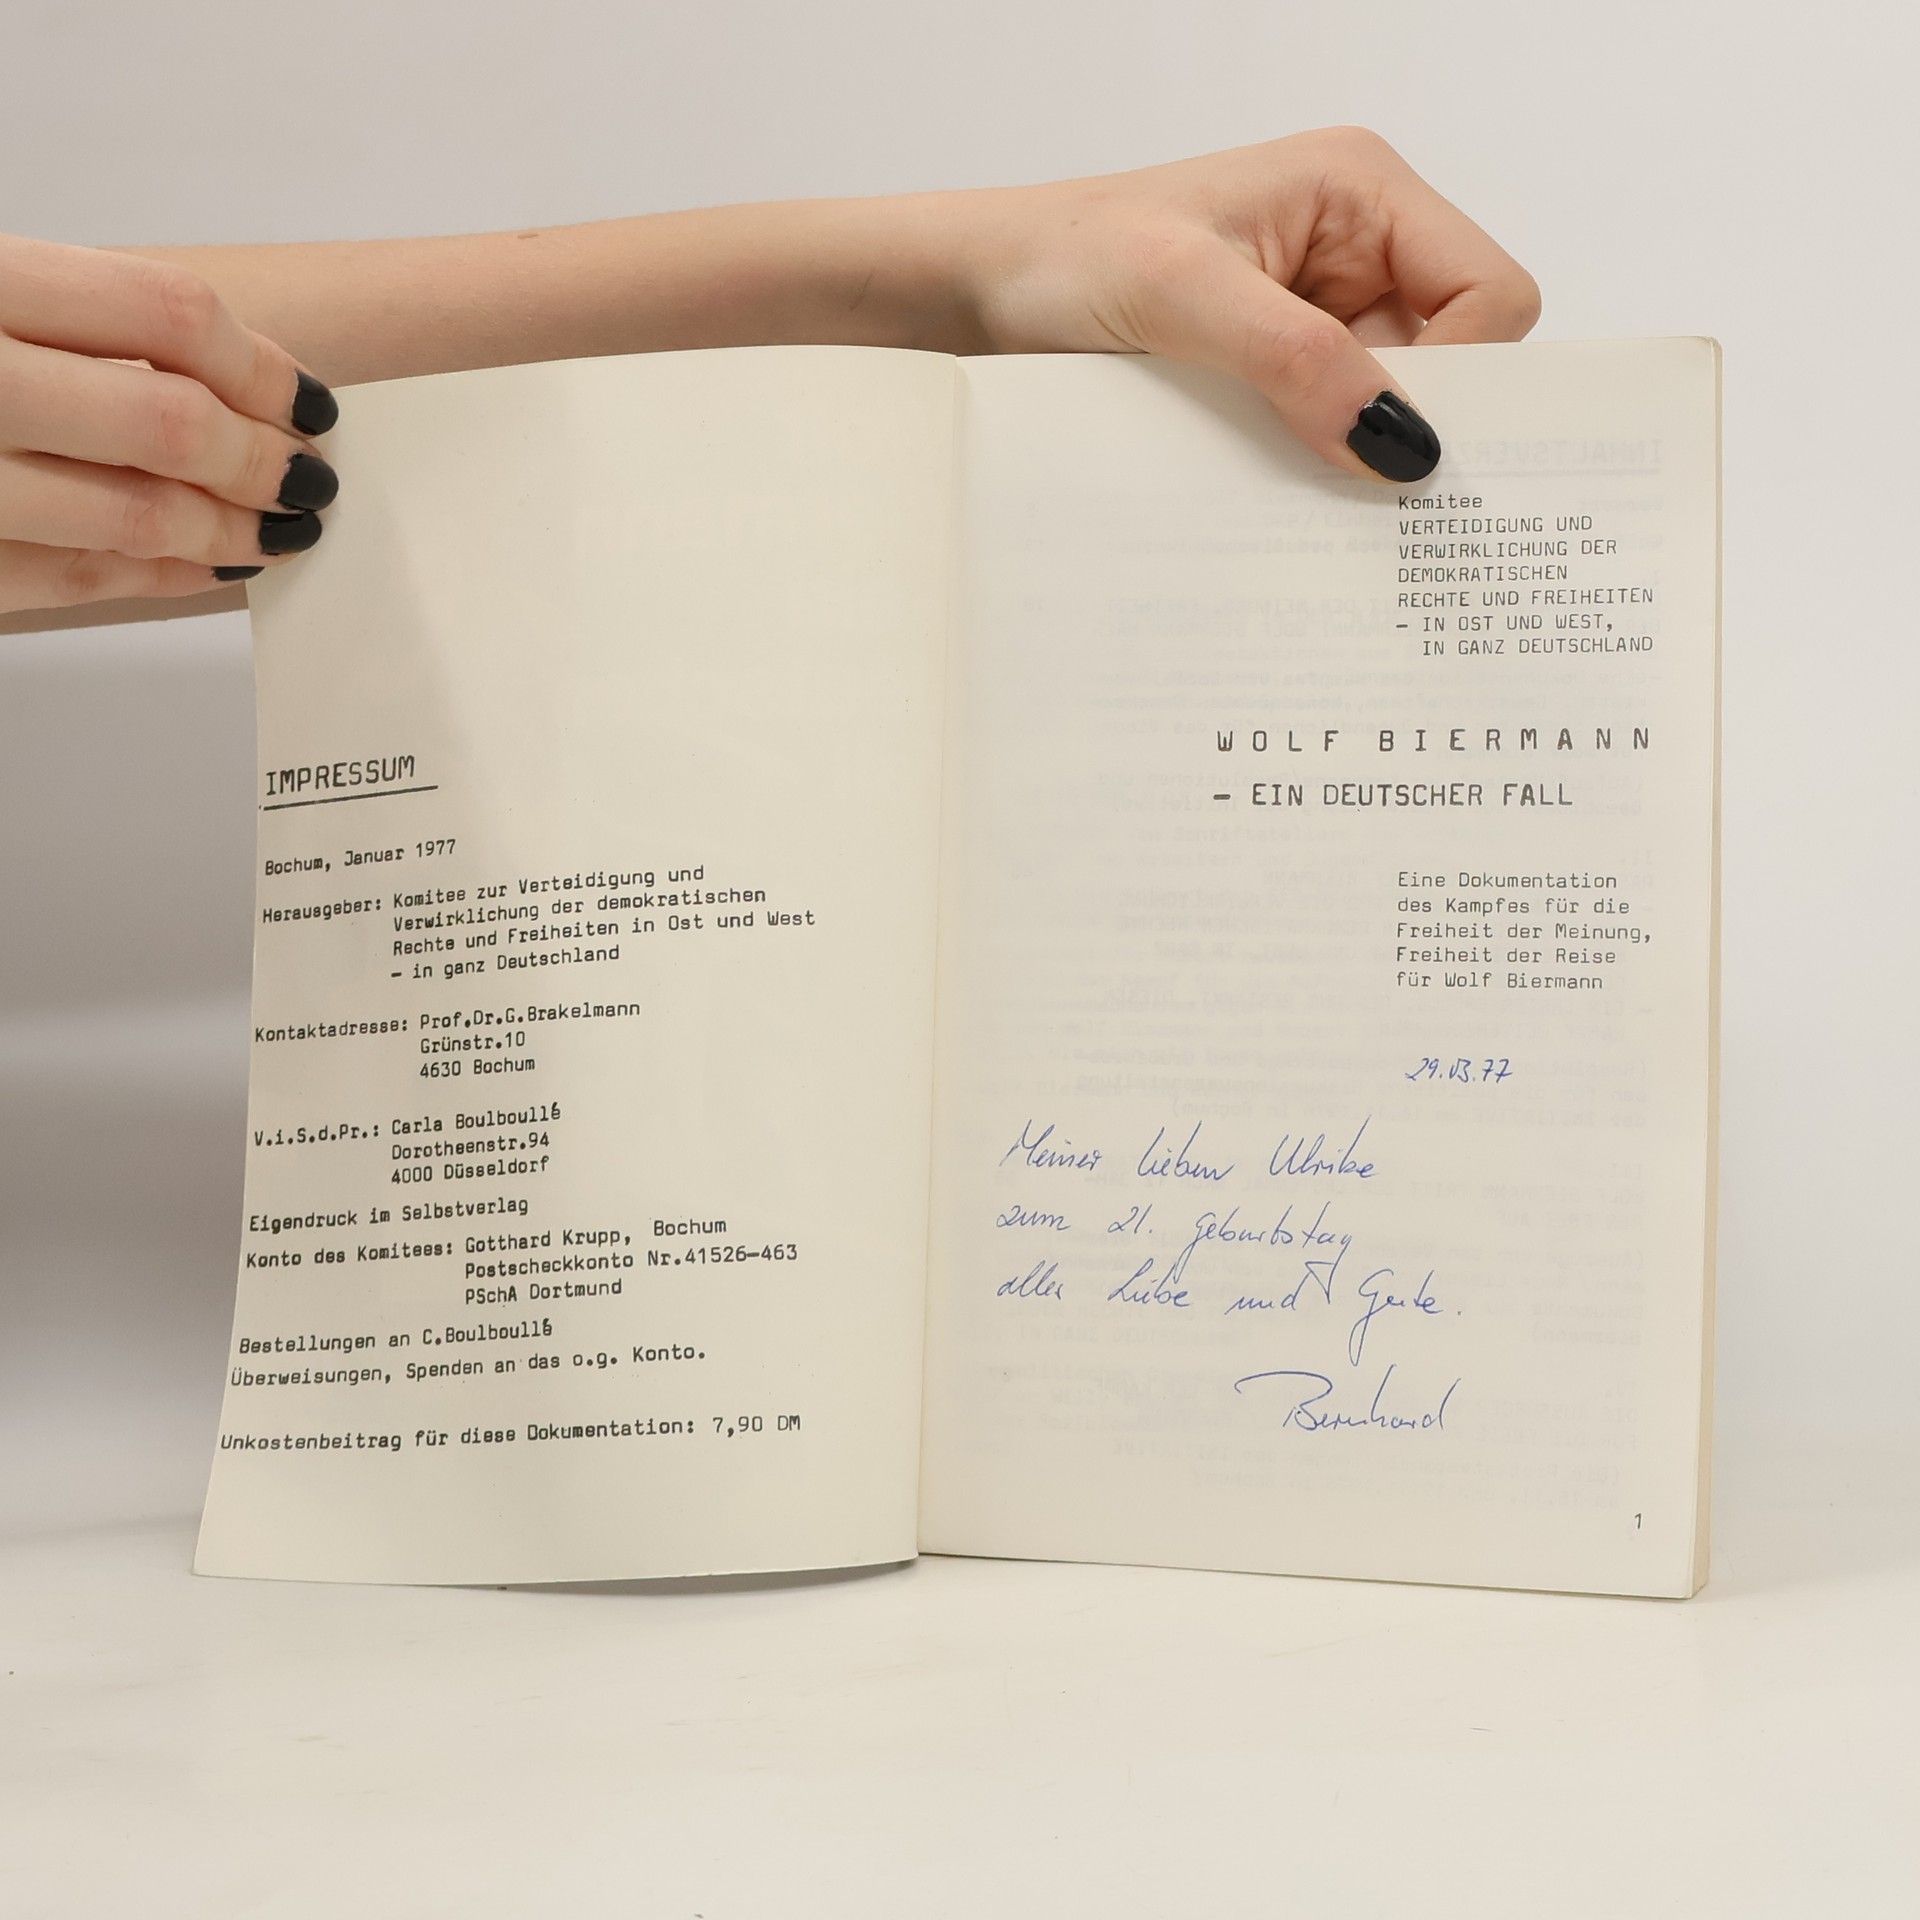 IMPRESSUM
Bochum, Januar 1977
Herausgeber: Komitee zur Verteidigung und
Verwirklichung der demokratischen
Rechte und Freiheiten in Ost und West
– in ganz Deutschland
Kontaktadresse: Prof.Dr.G.Brakelmann
Grünstr.10
4630 Bochum
V.i.S.d.Pr.: Carla Boulboullé
Dorotheenstr.94
4000 Düsseldorf
Eigendruck im Selbstverlag
Konto des Komitees: Gotthard Krupp, Bochum
Postscheckkonto Nr.41526-463
PSchA Dortmund
Bestellungen an C.Boulboullé
Überweisungen, Spenden an das o.g. Konto.
Unkostenbeitrag für diese Dokumentation: 7,90 DM
Komitee
VERTEIDIGUNG UND
VERWIRKLICHUNG DER
DEMOKRATISCHEN
RECHTE UND FREIHEITEN
– IN OST UND WEST,
IN GANZ DEUTSCHLAND
WOLF BIERMANN
– EIN DEUTSCHER FALL
Eine Dokumentation
des Kampfes für die
Freiheit der Meinung,
Freiheit der Reise
für Wolf Biermann
29.03.77
Meiner lieben Ulrike
zum 21. Geburtstag
alles Liebe und Gute.
Bernhard
1